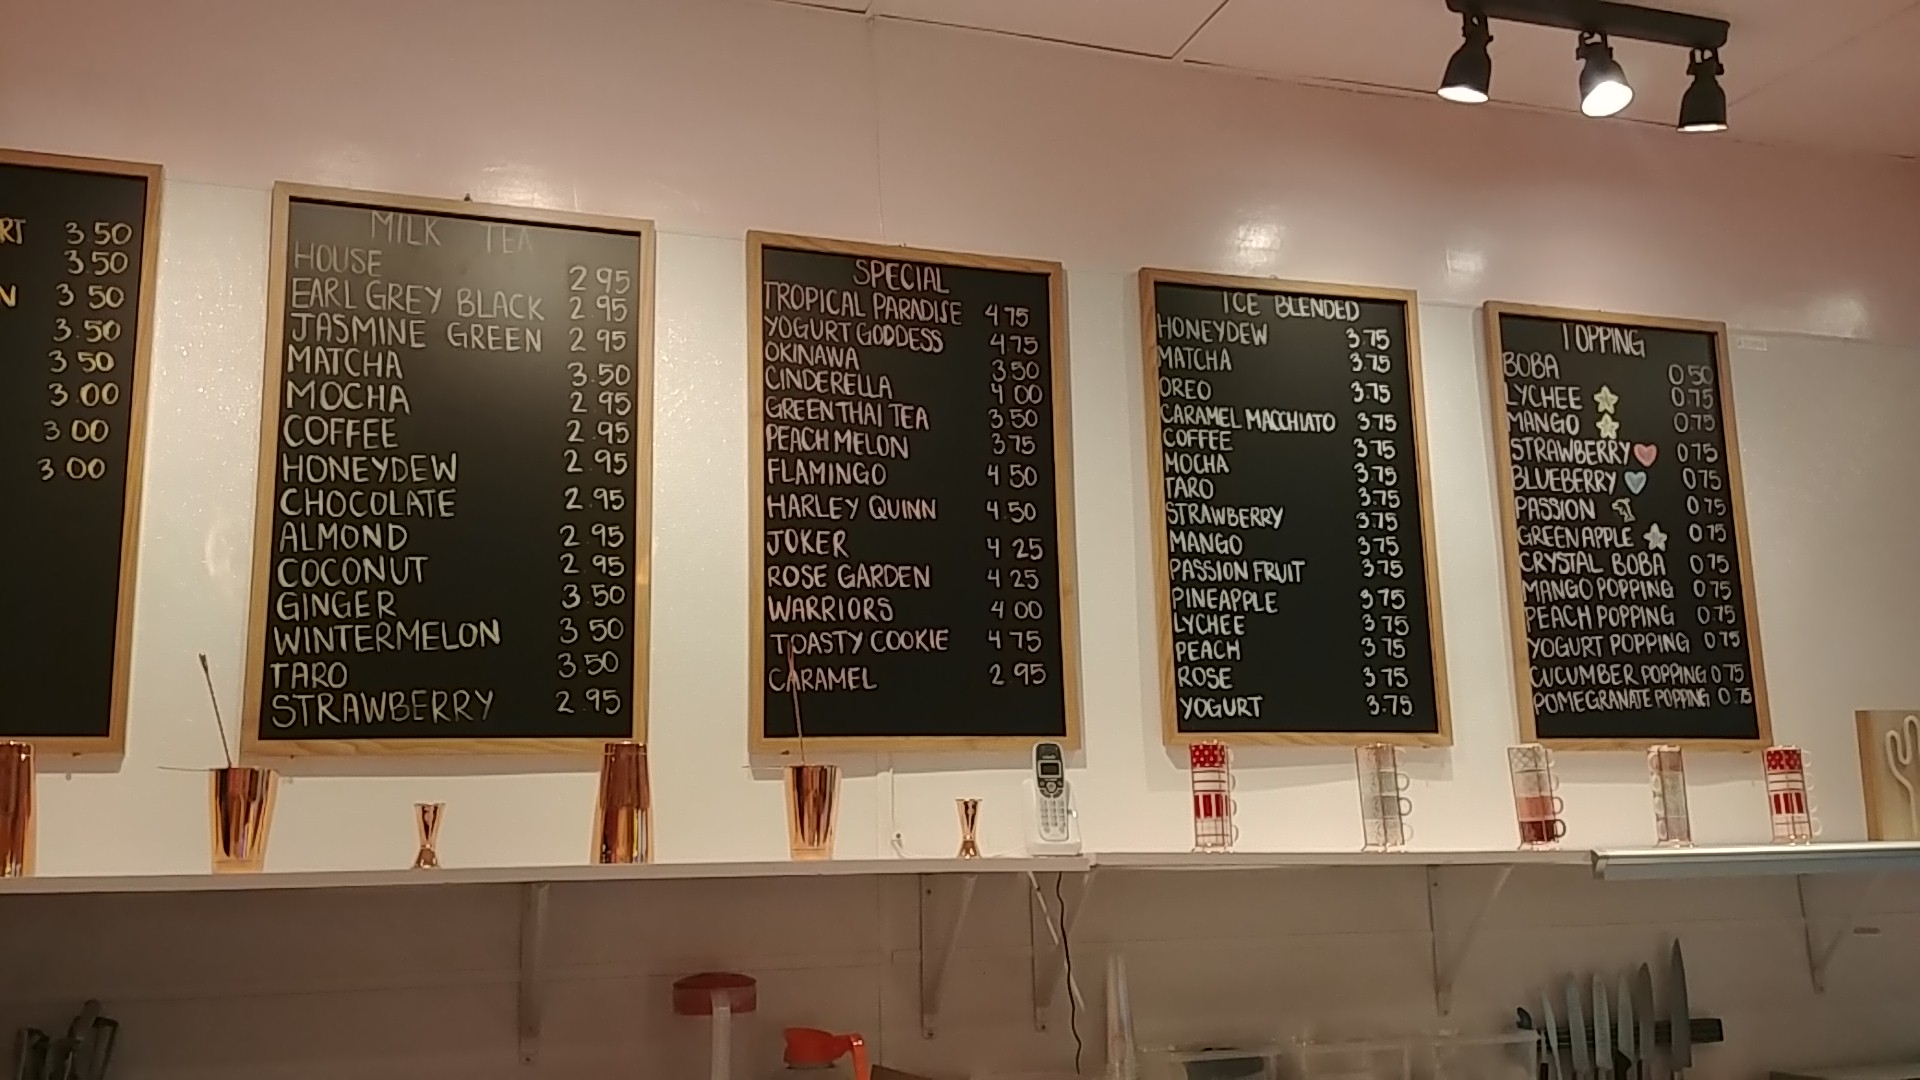 RT 3 50
3.50
N 3 50
3.50
3 50
3 00
3 00
3 00
MILK TEA
HOUSE 2 95
EARL GREY BLACK 2 95
JASMINE GREEN 2 95
MATCHA 3.50
MOCHA 2 95
COFFEE 2.95
HONEYDEW 2.95
CHOCOLATE 2.95
ALMOND 2 95
COCONUT 2 95
GINGER 3 50
WINTERMELON 3 50
TARO 3 50
STRAWBERRY 2.95
SPECIAL
TROPICAL PARADISE 4 75
YOGURT GODDESS 4.75
OKINAWA 3 50
CINDERELLA 4 00
GREEN THAI TEA 3 50
PEACH MELON 3 75
FLAMINGO 4 50
HARLEY QUINN 4.50
JOKER 4 25
ROSE GARDEN 4 25
WARRIORS 4 00
TOASTY COOKIE 4 75
CARAMEL 2 95
ICE BLENDED
HONEYDEW 3.75
MATCHA 3.75
OREO 3.75
CARAMEL MACCHIATO 3.75
COFFEE 3.75
MOCHA 3.75
TARO 3.75
STRAWBERRY 3.75
MANGO 3.75
PASSION FRUIT 3.75
PINEAPPLE 3 75
LYCHEE 3 75
PEACH 3 75
ROSE 3.75
YOGURT 3.75
TOPPING
BOBA 0 50
LYCHEE 0.75
MANGO 0.75
STRAWBERRY 0 75
BLUEBERRY 0 75
PASSION 0 75
GREEN APPLE 0 75
CRYSTAL BOBA 0 75
MANGO POPPING 0 75
PEACH POPPING 0 75
YOGURT POPPING 0 75
CUCUMBER POPPING 0 75
POMEGRANATE POPPING 0 75